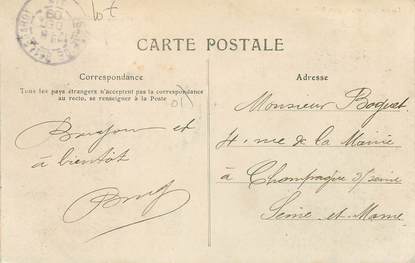 lot
CARTE POSTALE
Correspondance
Tous les pays étrangers n'acceptent pas la correspondance
au recto, se renseigner à la Poste
Bonjour et
à bientôt
Adresse
Monsieur Boquet
4 rue de la Mairie
à Champagne s/ seine
Seine et Marne